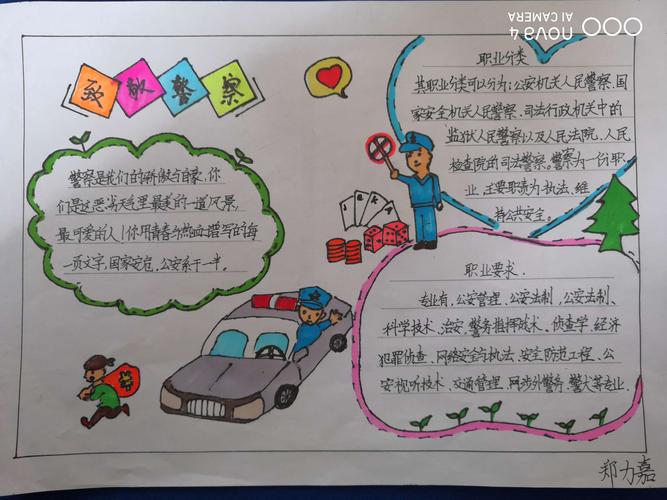 致敬警察
警察是我们的骄傲与自豪,你
们是这恶劣天气里最美的一道风景,
最可爱的人!你用青春与热血谱写的每
一页文字,国家安危,公安系于一半。
职业分类
其职业分类可以分为:公安机关人民警察、国
家安全机关人民警察、司法行政机关中的
监狱人民警察以及人民法院、人民
检查院的司法警察。警察为一份职
业,主要职责为执法、维
持公共安全。
职业要求.
专业有,公安管理、公安法制、公安法制、
科学技术、治安、警务指挥战术、侦查学、经济
犯罪侦查、网络安全与执法、安全防范工程、公
安视听技术、交通管理、涉外警务、警犬等专业.
郑力嘉
nova 4
AI CAMERA